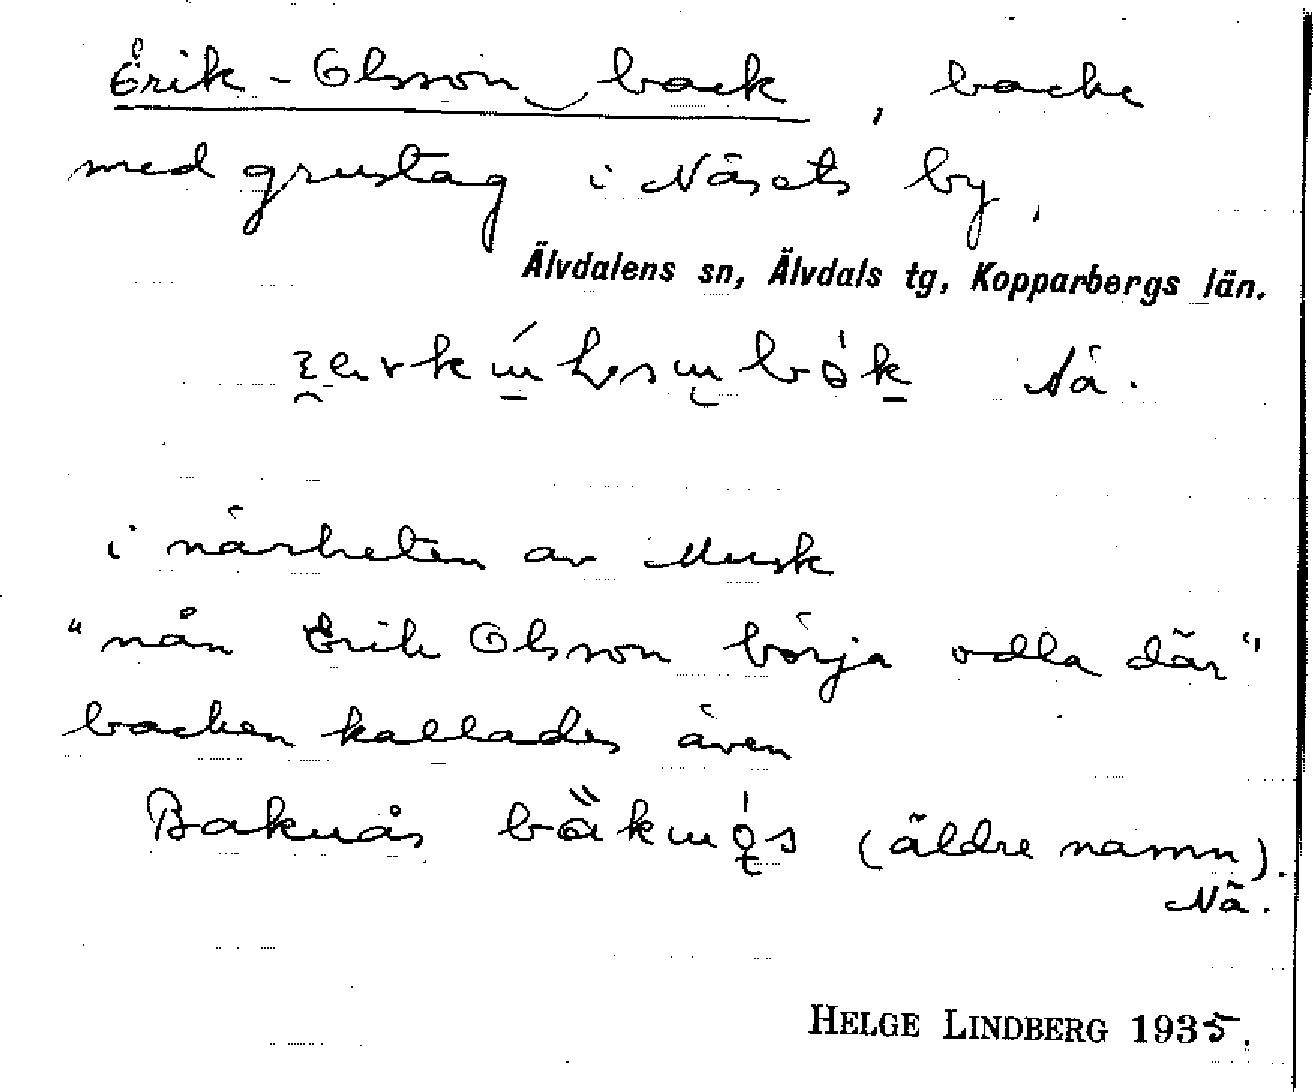 Erik-Olsson‿back, backe
med grustag i Näsets by,
Älvdalens sn, Älvdals tg, Kopparbergs län.
Nä.
i närheten av Musk
"nån Erik Olsson börja odla där"
backen kallades även
Baknäs (äldre namn).
Nä.
HELGE LINDBERG 1935.